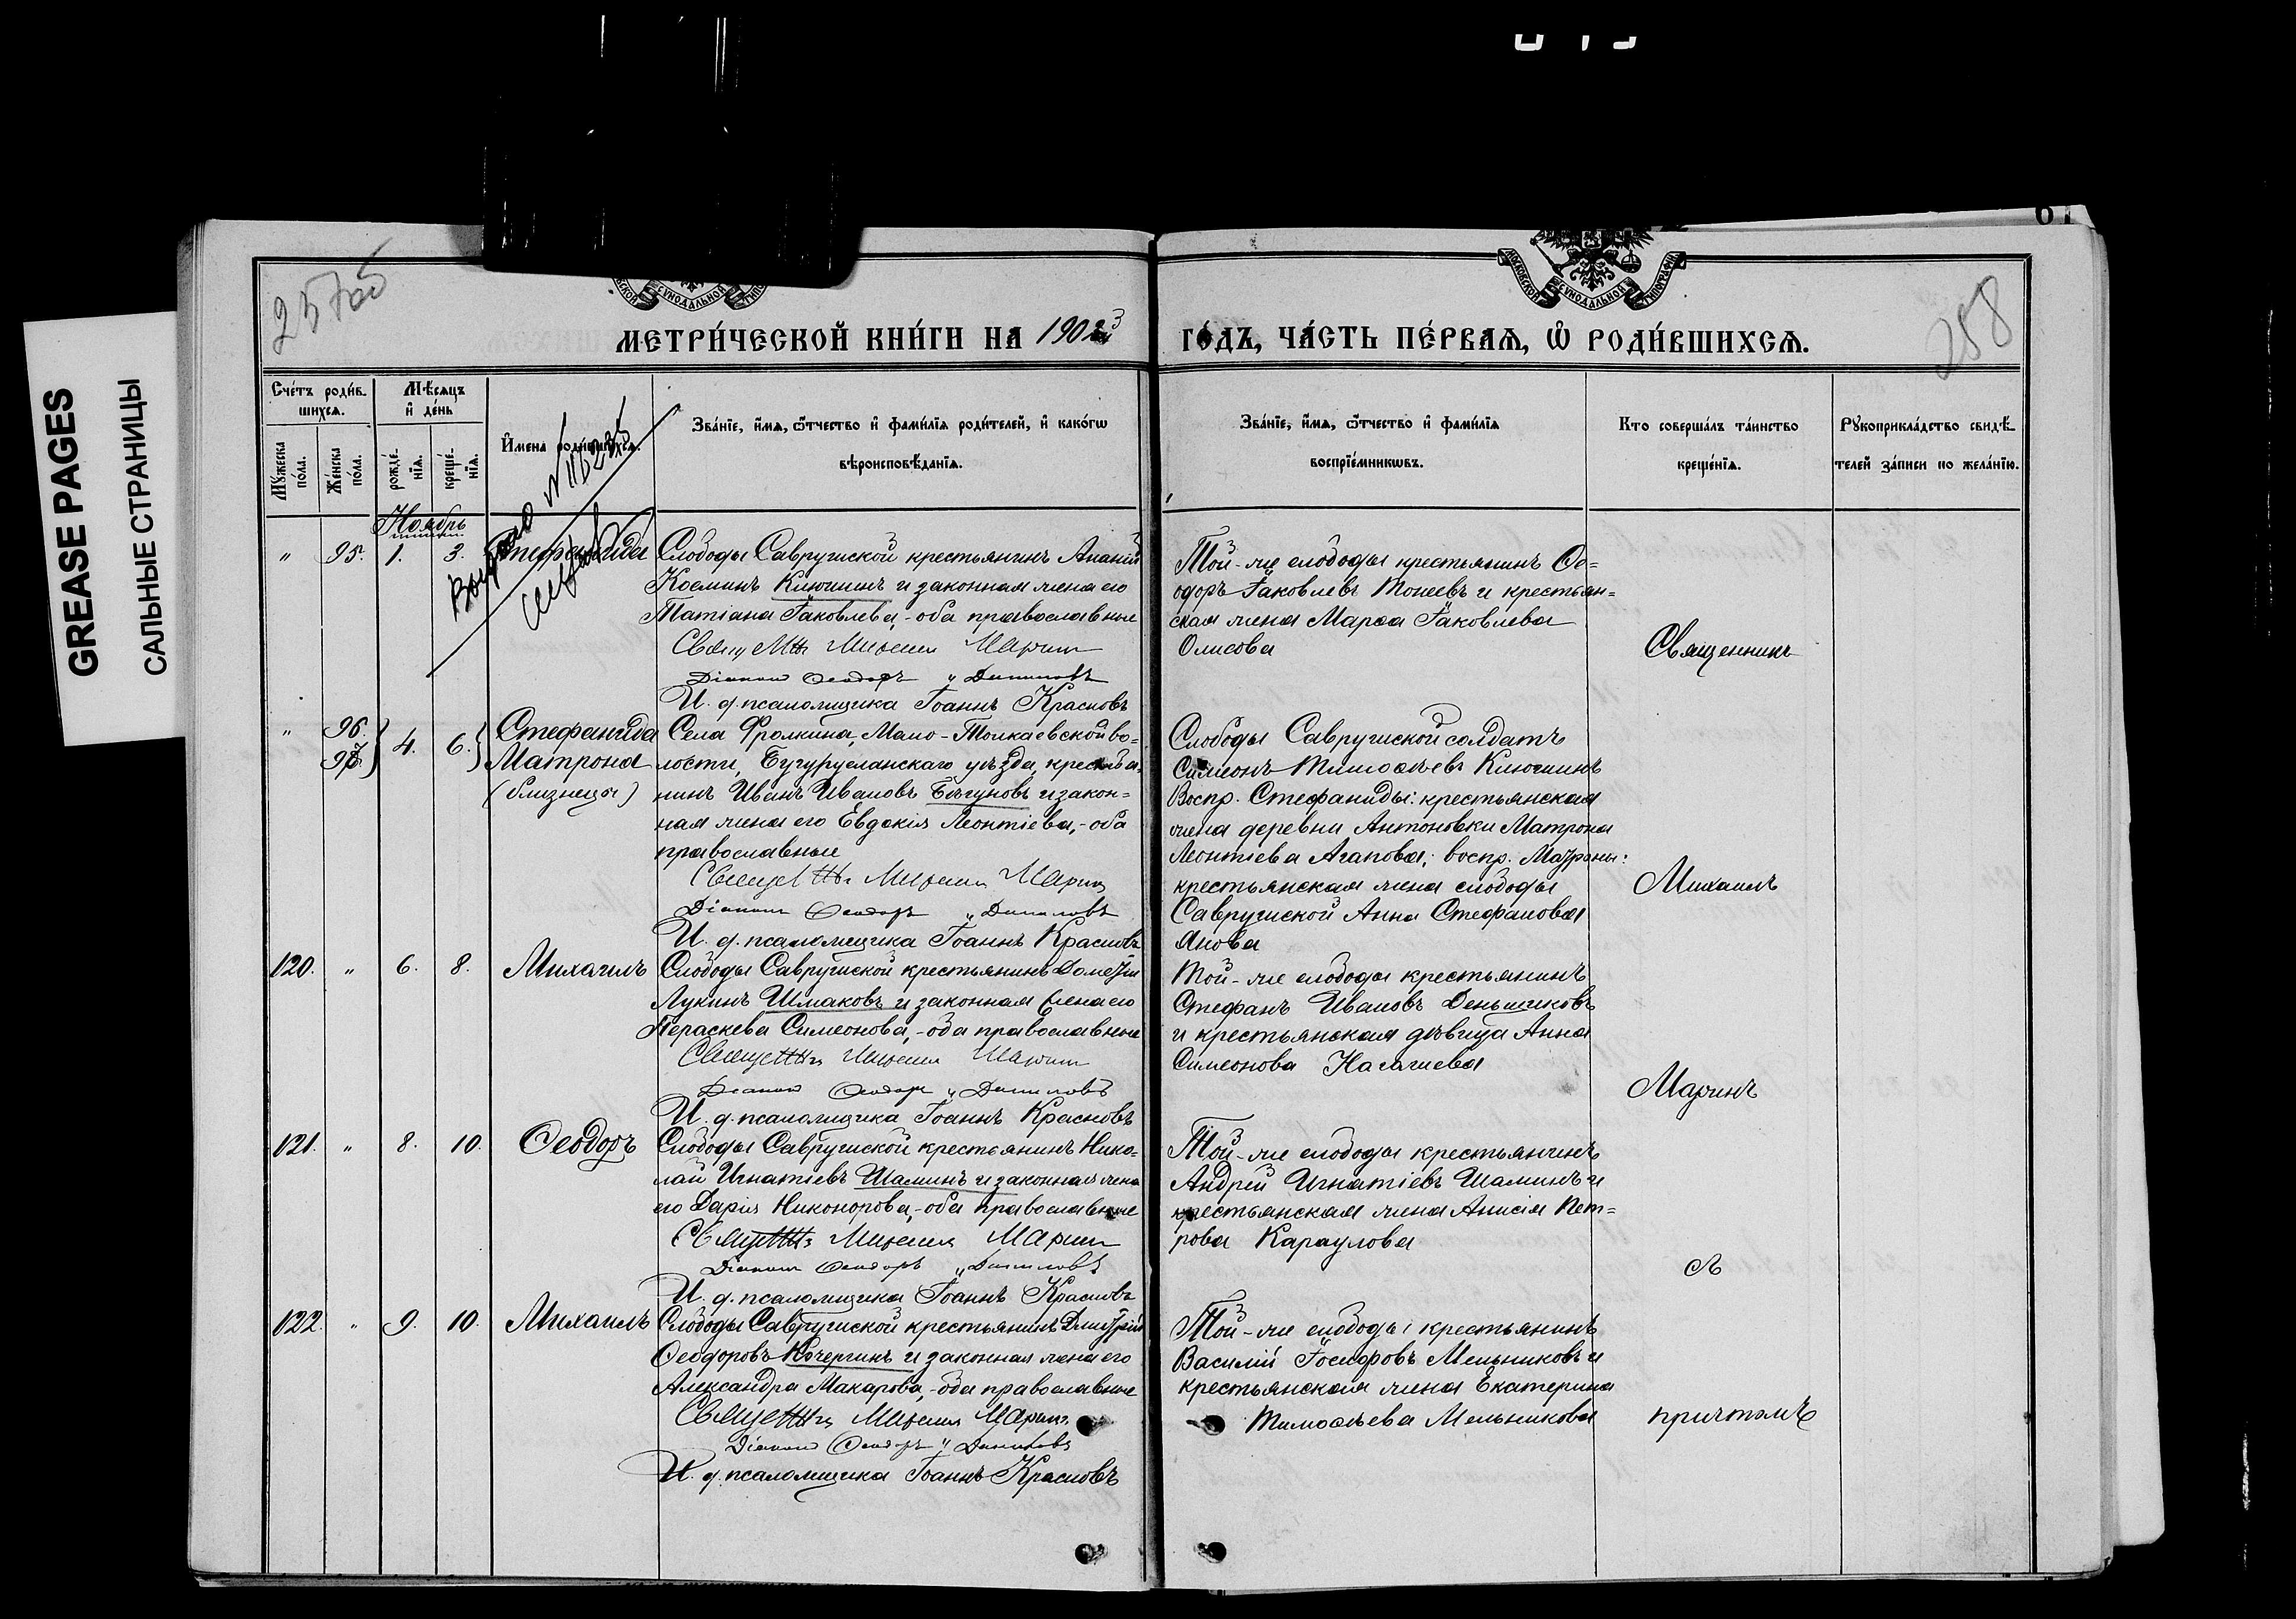 GREASE PAGES
САЛЬНЫЕ СТРАНИЦЫ
258
МЕТРИ́ЧЕСКОЙ КНИ́ГИ НА 1903 ГО́ДЪ, ЧА́СТЬ ПЕ́РВАЯ, Ѡ РОДИ́ВШИХСЯ.
Счетъ родив-
шихся.
Мѣсяцъ
и день
Мужеска пола.
Женска пола.
рожде-нія.
креще-нія.
Имена родившихся.
Званіе, имя, ѿчество и фамилія родителей, и какогѡ
вѣроисповѣданія.
Званіе, имя, ѿчество и фамилія
воспріемниковъ.
Кто совершалъ таинство
крещенія.
Рукоприкладство свидѣ-
телей записи по желанію.
Ноябрь
" 95. 1. 3. Стефанида
Слободы Савrушской крестьянинъ Ананій
Косминъ Ключинъ и законная жена его
Татіана Іаковлева, - оба православные
Свящ Михаилъ Маринъ
Діаконъ Ѳеодоръ Даниловъ
И. д. псаломщика Іоаннъ Красновъ
Той-же слободы крестьянинъ Ѳе=
одоръ Іаковлевъ Монеевъ и крестьян=
ская жена Марѳа Іаковлева
" 96. 97. 4. 6. Стефанида
Матрона
(близнецы)
Села Фролкина, Мало-Толкаевской во=
лости, Бугурусланскаго уѣзда, крестья=
нинъ Иванъ Ивановъ Бѣгуновъ и закон=
ная жена его Евдокія Леонтіева, - оба
православные
Михаилъ Маринъ
Діаконъ Ѳеодоръ Даниловъ
И. д. псаломщика Іоаннъ Красновъ
Слободы Савrушской солдатъ
Симеонъ Тимоѳеевъ Ключинъ
Воспр. Стефаниды: крестьянская
жена деревни Антоновки Матрона
Леонтіева Агапова; воспр. Матроны:
крестьянская жена слободы
Савrушской Анна Стефанова
Янова
120. " 6. 8. Михаилъ
Слободы Савrушской крестьянинъ
Лукинъ Шмаковъ и законная жена его
Параскева Симеонова, - оба православные
Михаилъ Маринъ
Діаконъ Ѳеодоръ Даниловъ
И. д. псаломщика Іоаннъ Красновъ
Той-же слободы крестьянинъ
Стефанъ Ивановъ Деньщиковъ
и крестьянская дѣвица Анна
Симеонова
121. " 8. 10. Ѳеодоръ
Слободы Савrушской крестьянинъ Нико=
лай Игнатіевъ Шаминъ и законная жена
его Дарія Никонорова, - оба православные
Михаилъ Маринъ
Діаконъ Ѳеодоръ Даниловъ
И. д. псаломщика Іоаннъ Красновъ
Той-же слободы крестьянинъ
Андрей Игнатіевъ Шаминъ и
крестьянская жена Анисія Пет=
рова Караулова
122. " 9. 10. Михаилъ
Слободы Савrушской крестьянинъ Димитрій
Ѳеодоровъ Кочергинъ и законная жена его
Александра Макарова, - оба православные
Михаилъ Маринъ
Діаконъ Ѳеодоръ Даниловъ
И. д. псаломщика Іоаннъ Красновъ
Той-же слободы крестьянинъ
Василій Іосифовъ Мельниковъ и
крестьянская жена Екатерина
Тимоѳеева Мельникова
Священникъ
Михаилъ
Маринъ
съ
причтомъ